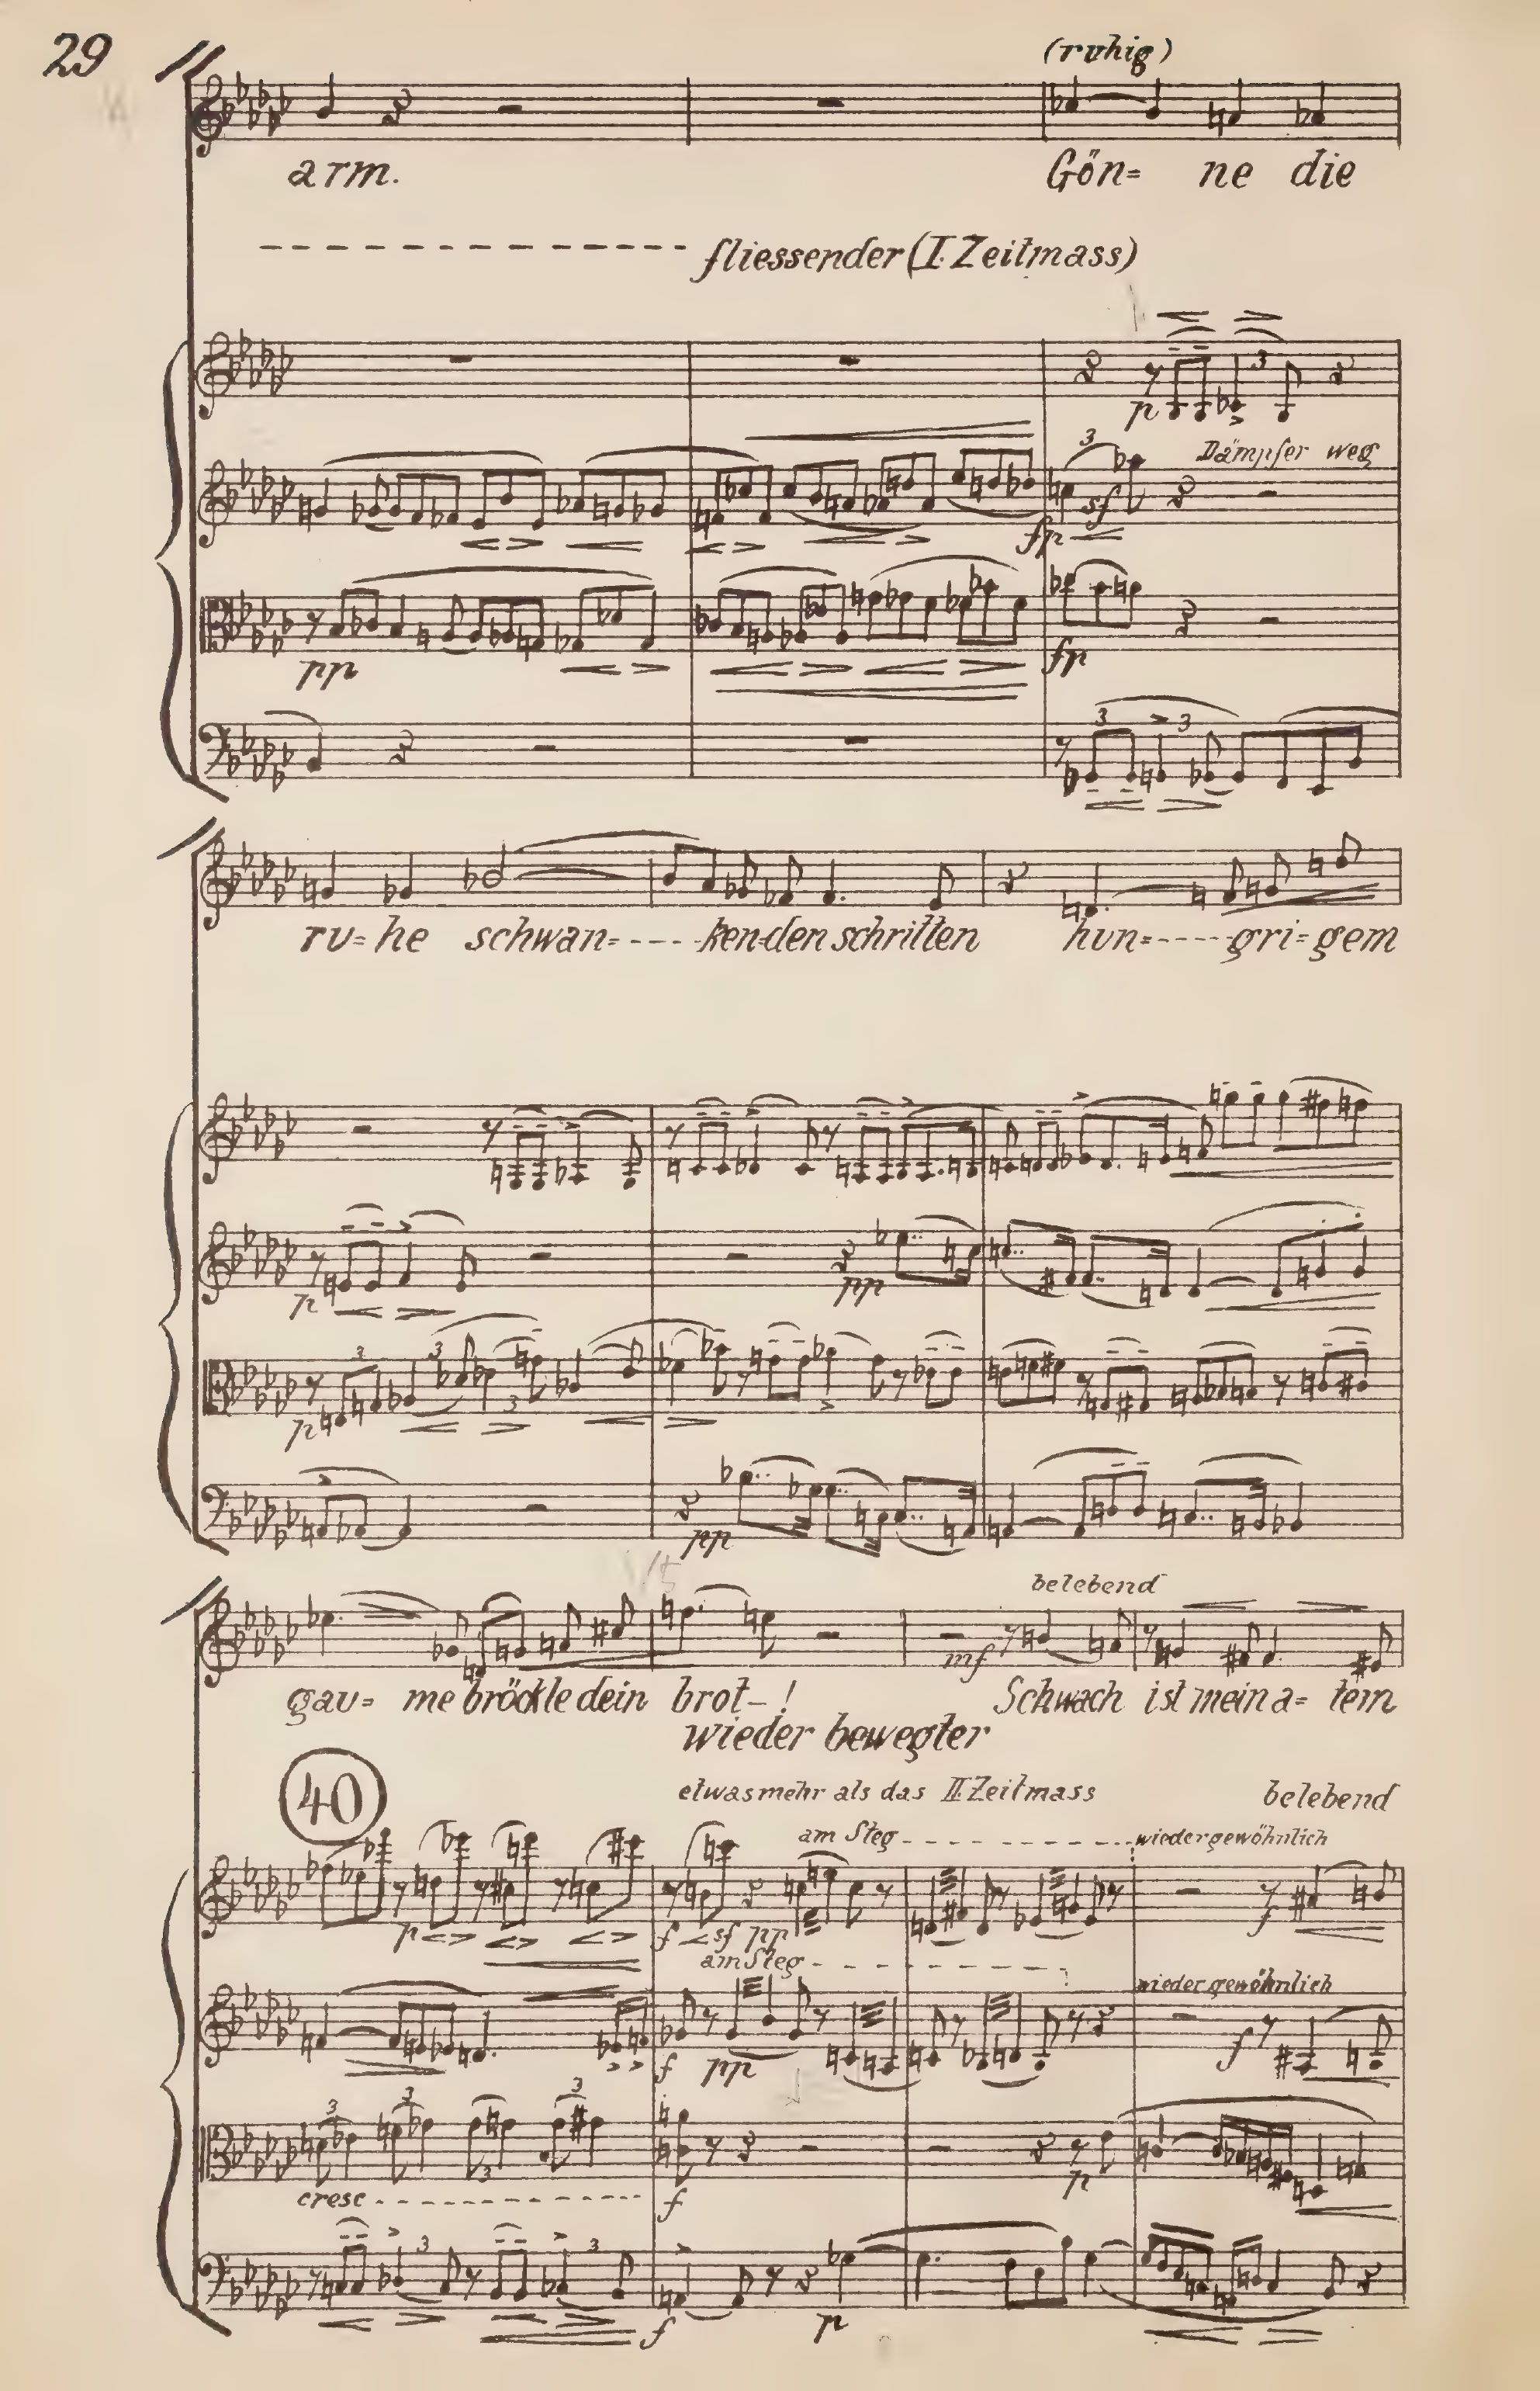 29
(ruhig)
arm. Gön= ne die
fliessender (I. Zeitmass)
3
p
3 Dämpfer weg
sf
fp
pp fp
3 3
ru=he schwan=---- ken=den schritten hun=----gri=gem
p pp
3 3
p 3
pp
belebend
mf
gau= me bröckle dein brot-! Schwach ist mein a= tem
wieder bewegter
40
etwas mehr als das II. Zeitmass belebend
am Steg - - - - - - - - - - - wieder gewöhnlich
p f sf pp f
am Steg - - - - - - - - - wieder gewöhnlich
f pp f
3 3 3
3
cresc - - - - - - - - - - - f p
3 3
f p